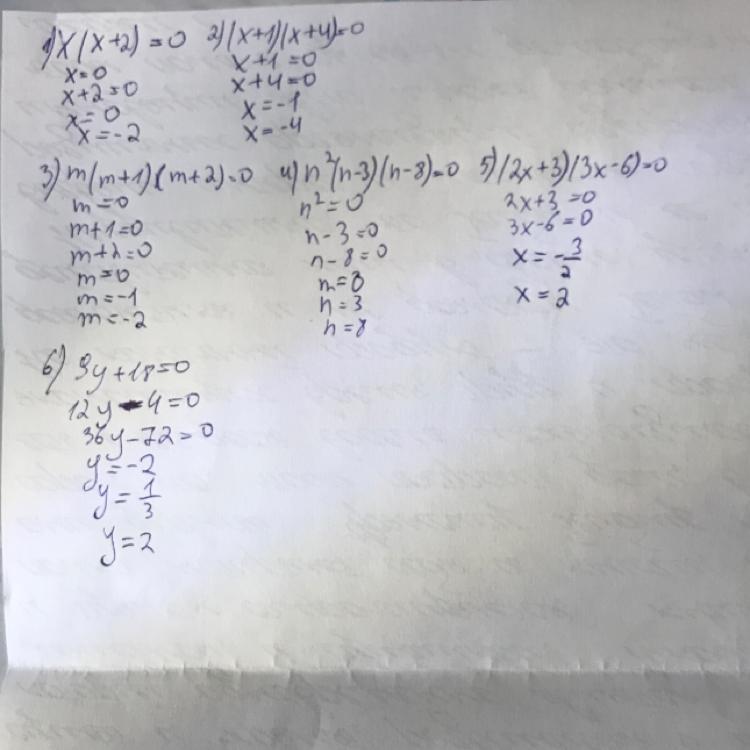 1) x(x+2)=0
x=0
x+2=0
x=0
x=-2
2) (x+1)(x+4)=0
x+1=0
x+4=0
x=-1
x=-4
3) m(m+1)(m+2)=0
m=0
m+1=0
m+2=0
m=0
m=-1
m=-2
4) n²(n-3)(n-8)=0
n²=0
n-3=0
n-8=0
n=0
n=3
n=8
5) (2x+3)(3x-6)=0
2x+3=0
3x-6=0
x=-3/2
x=2
6) 9y+18=0
12y-4=0
36y-72=0
y=-2
y=1/3
y=2